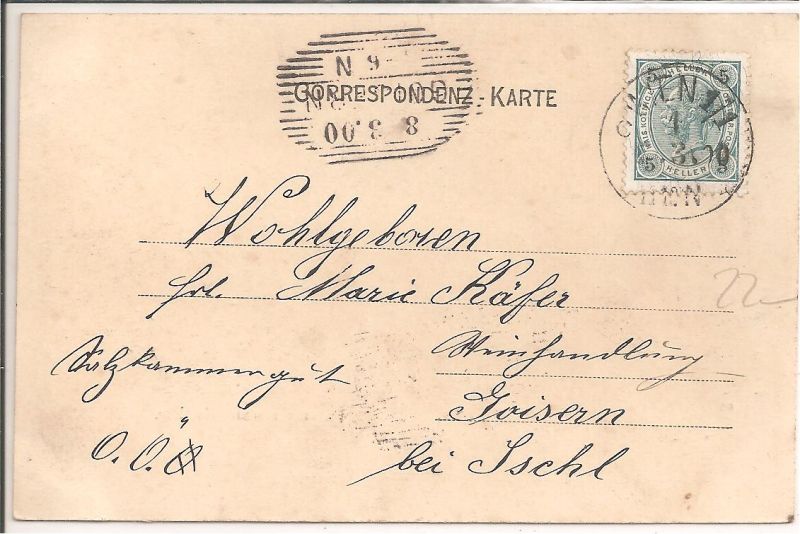 N 9
CORRESPONDENZ-KARTE
8 3.00
5 5
5 HELLER 5
Wohlgeboren
Frl. Marie Käfer
Weinhandlung
Salzkammergut
Goisern
O.Ö.
bei Ischl
22